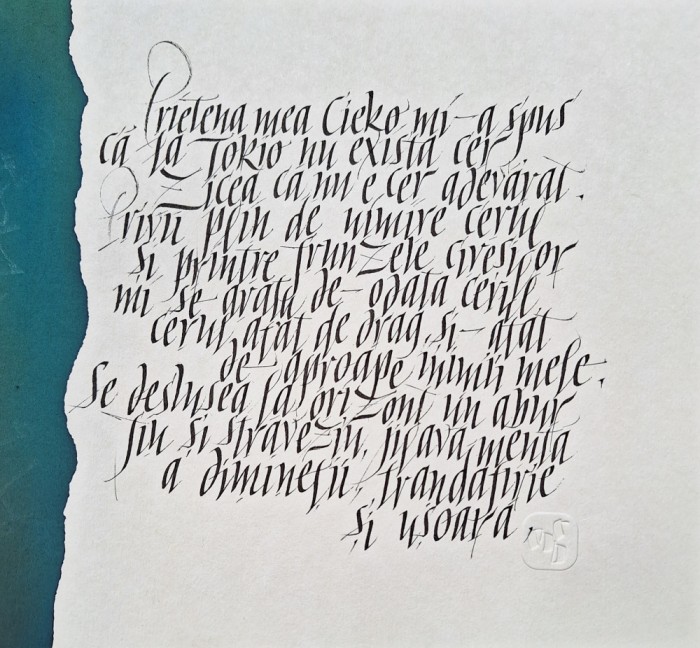 Prietena mea Cieko mi-a spus
că la Tokio nu există cer
Zicea că nu e cer adevărat.
Privii plin de uimire cerul
și printre frunzele cireșilor
mi se arată de-odată cerul
cerul atât de drag, și-atât
de aproape inimii mele.
Se deslușea la orizont un abur
fin și străveziu,
a dimineții, trandafirie
și ușoară.